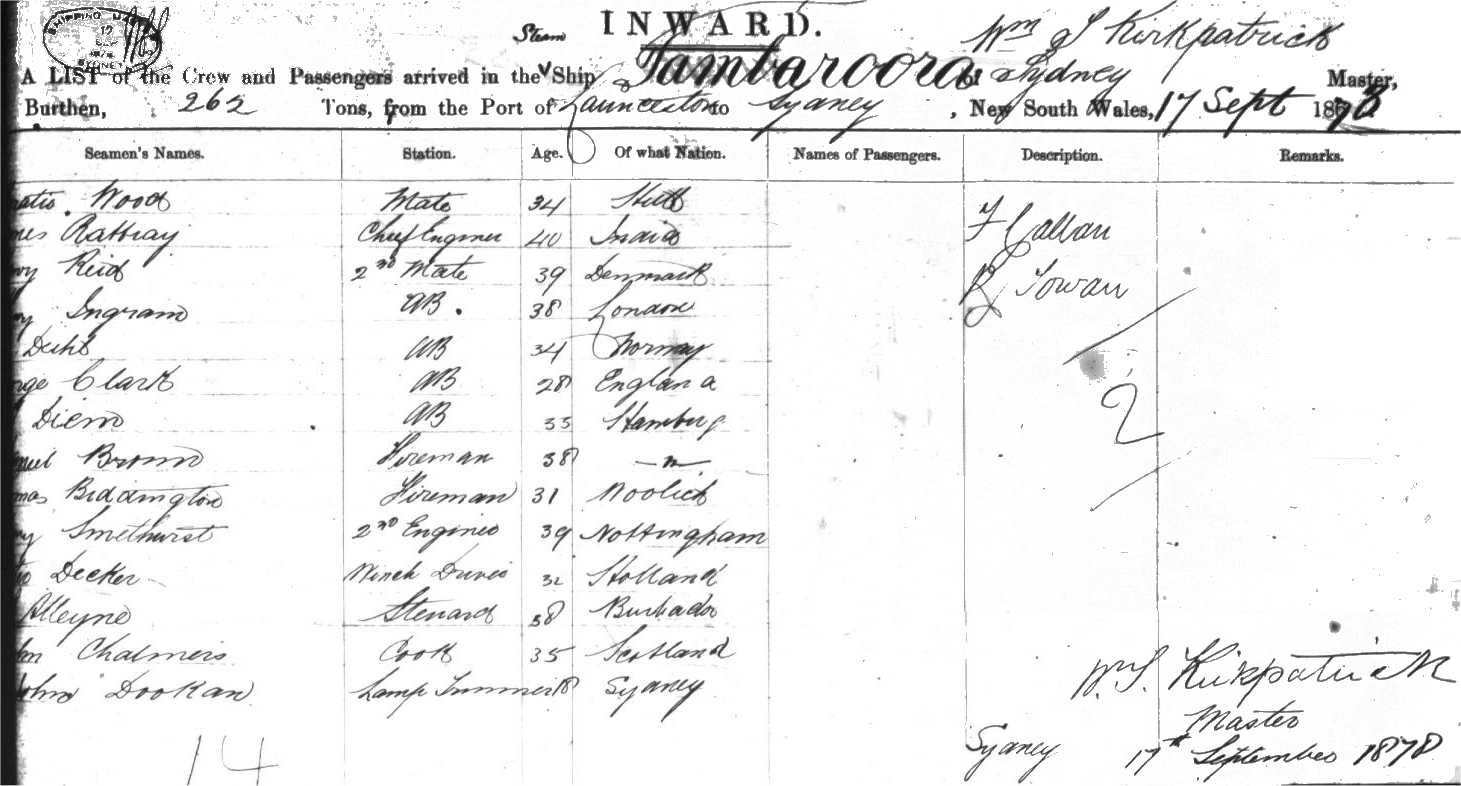 SHIPPING MA
17
1878
SYDNEY
INWARD.
Steam
Wm S Kirkpatrick
A LIST of the Crew and Passengers arrived in the Ship Tambaroora of Sydney Master,
Burthen, 262 Tons, from the Port of Launceston to Sydney, New South Wales, 17 Sept 1878
Seamen's Names. Station. Age. Of what Nation. Names of Passengers. Description. Remarks.
Wood Mate 34
Rattray Chief Engineer 40 India
F Callan
Reid 2nd Mate 39 Denmark
Towan
Ingram AB. 38 London
AB 34 Norway
Clark AB 28 England
2
Diem AB 33 Hamburg
Brown Fireman 38 —"—
Biddington Fireman 31 Woolich
Smethurst 2nd Engineer 39 Nottingham
Decker Winch Driver 32 Holland
Alleyne Steward 38 Barbados
Chalmers Cook 35 Scotland
John Dookan Lamp Trimmer 18 Sydney
W. S. Kirkpatrick
Master
14
Sydney 17th September 1878